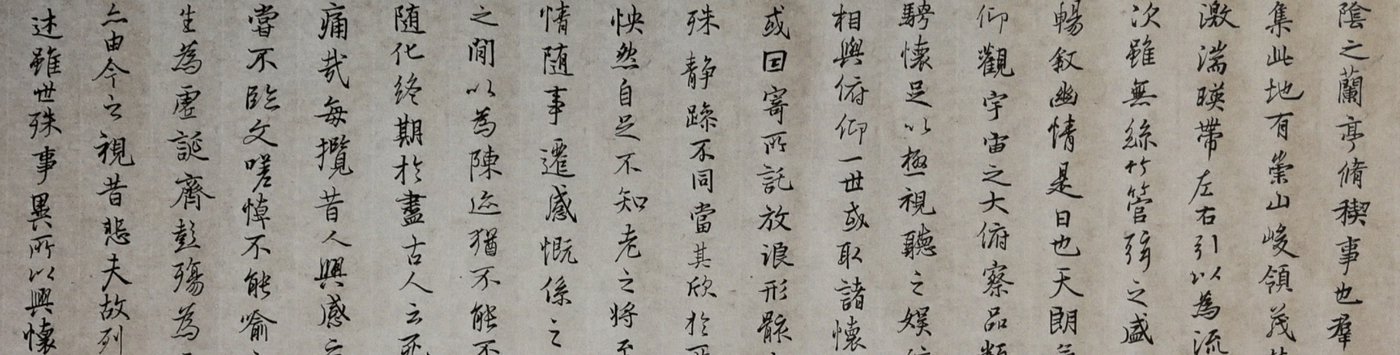 陰之蘭亭脩稧事也羣
集此地有崇山峻領茂
激湍暎帶左右引以為流
次雖無絲竹管弦之盛
暢叙幽情是日也天朗
仰觀宇宙之大俯察品類
騁懷足以極視聽之娛
相與俯仰一世或取諸懷
或因寄所託放浪形骸
殊静躁不同當其欣於
怏然自足不知老之將至
情隨事遷感慨係之
之間以為陳迹猶不能不
隨化終期於盡古人云死
痛哉每攬昔人興感
嘗不臨文嗟悼不能喻
生為虛誕齊彭殤為
亦由今之視昔悲夫故列
述雖世殊事異所以興懷